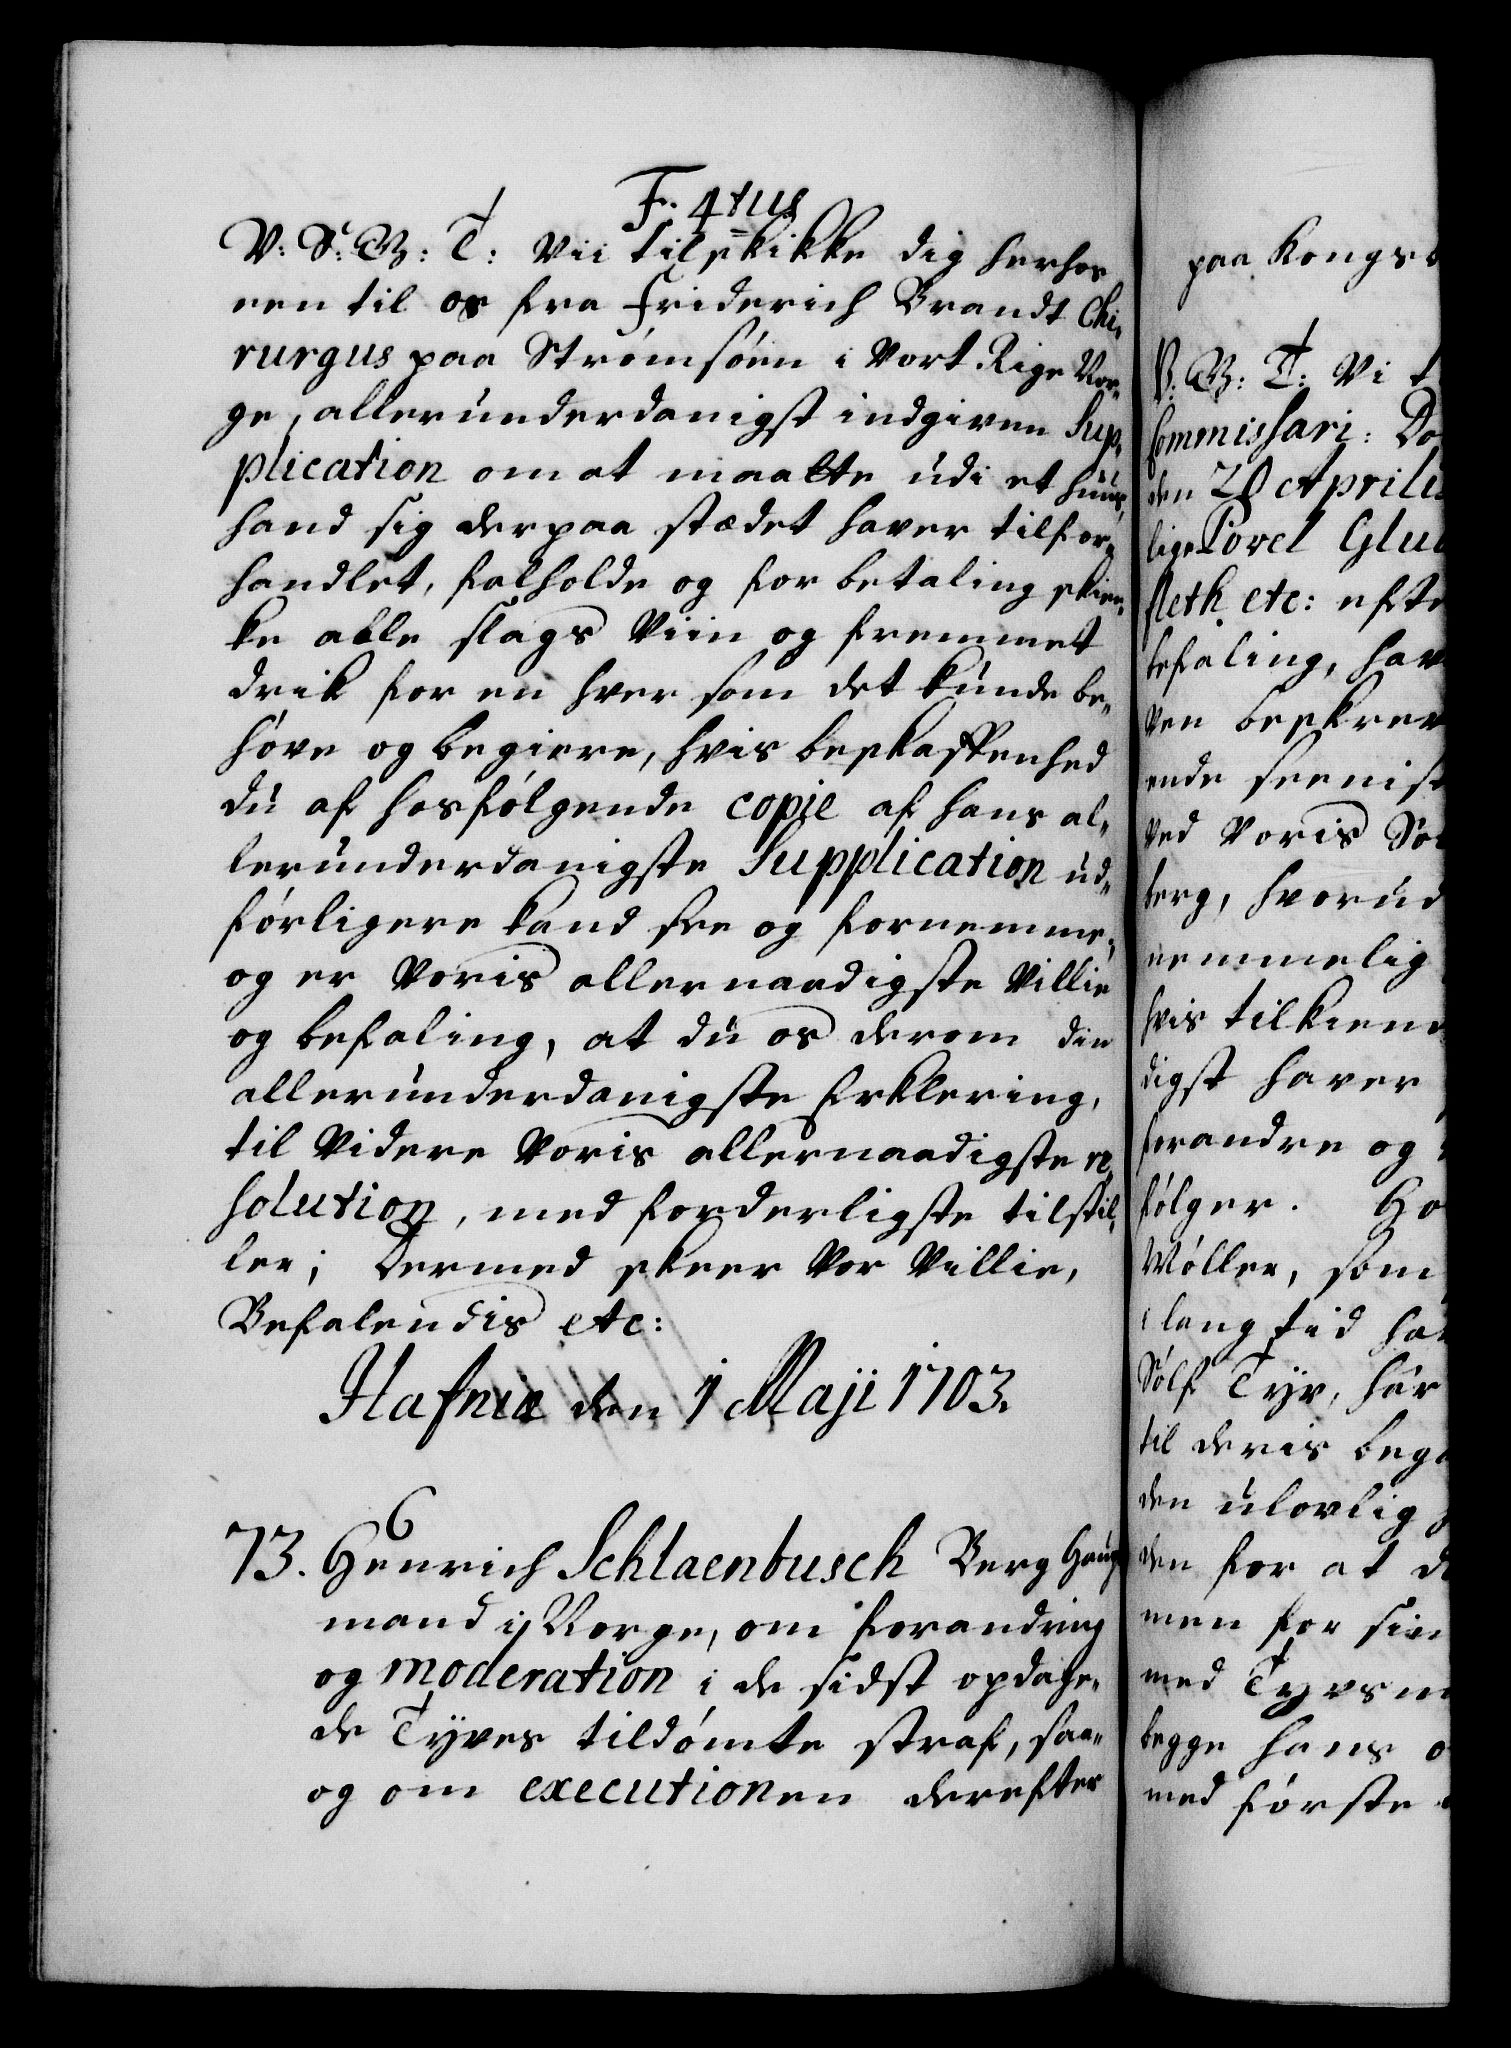 F. 4tus
V: S: B: T: Vii tilskikke dig herhos
een til os fra Friderich Brandt Chi„
rurgus paa Strømsöen i Vort Rige Nor„
ge, allerunderdanigst indgiven Sup„
plication om at maatte udi et huus,
hand sig der paa stædet haver tilfor„
handlet, falholde og for betaling skien„
ke alle slags Viin og fremmet
drik for en hver som det kunde be„
höve og begiere, hvis beskaffenhed
du af hosfölgende copie af hans al„
lerunderdanigste Supplication ud„
förligere kand see og fornemme,
og er Voris allernaadigste Villie
og befaling, at du os derom din
allerunderdanigste Erklering,
til Videre Voris allernaadigste re„
solution, med forderligste tilstil„
ler; Dermed skeer Vor Villie,
Befalendis etc:
Hafniæ den 1 Maji 1703.
73. Henrich Schlaenbusch Berg Haupt
mand i Norge, om forandring
og moderation i de sidst opdage„
de Tyves tildömte straf, saa„
og om executionen derefter
paa Kongs
B: T: Vi
Commissari:
den 28 Aprilis
lige Povel
fleth etc: efter
befaling,
ven beskrev
ende
Ved Voris
berg, hvorud
nemmelig
hvis tilkiend
digst haver
forandre og
fölger.
Möller, som
lang tid
Sölf Tyv, har
til deris
den ulovlig
den for at
men for sin
med
begge hans
med förste